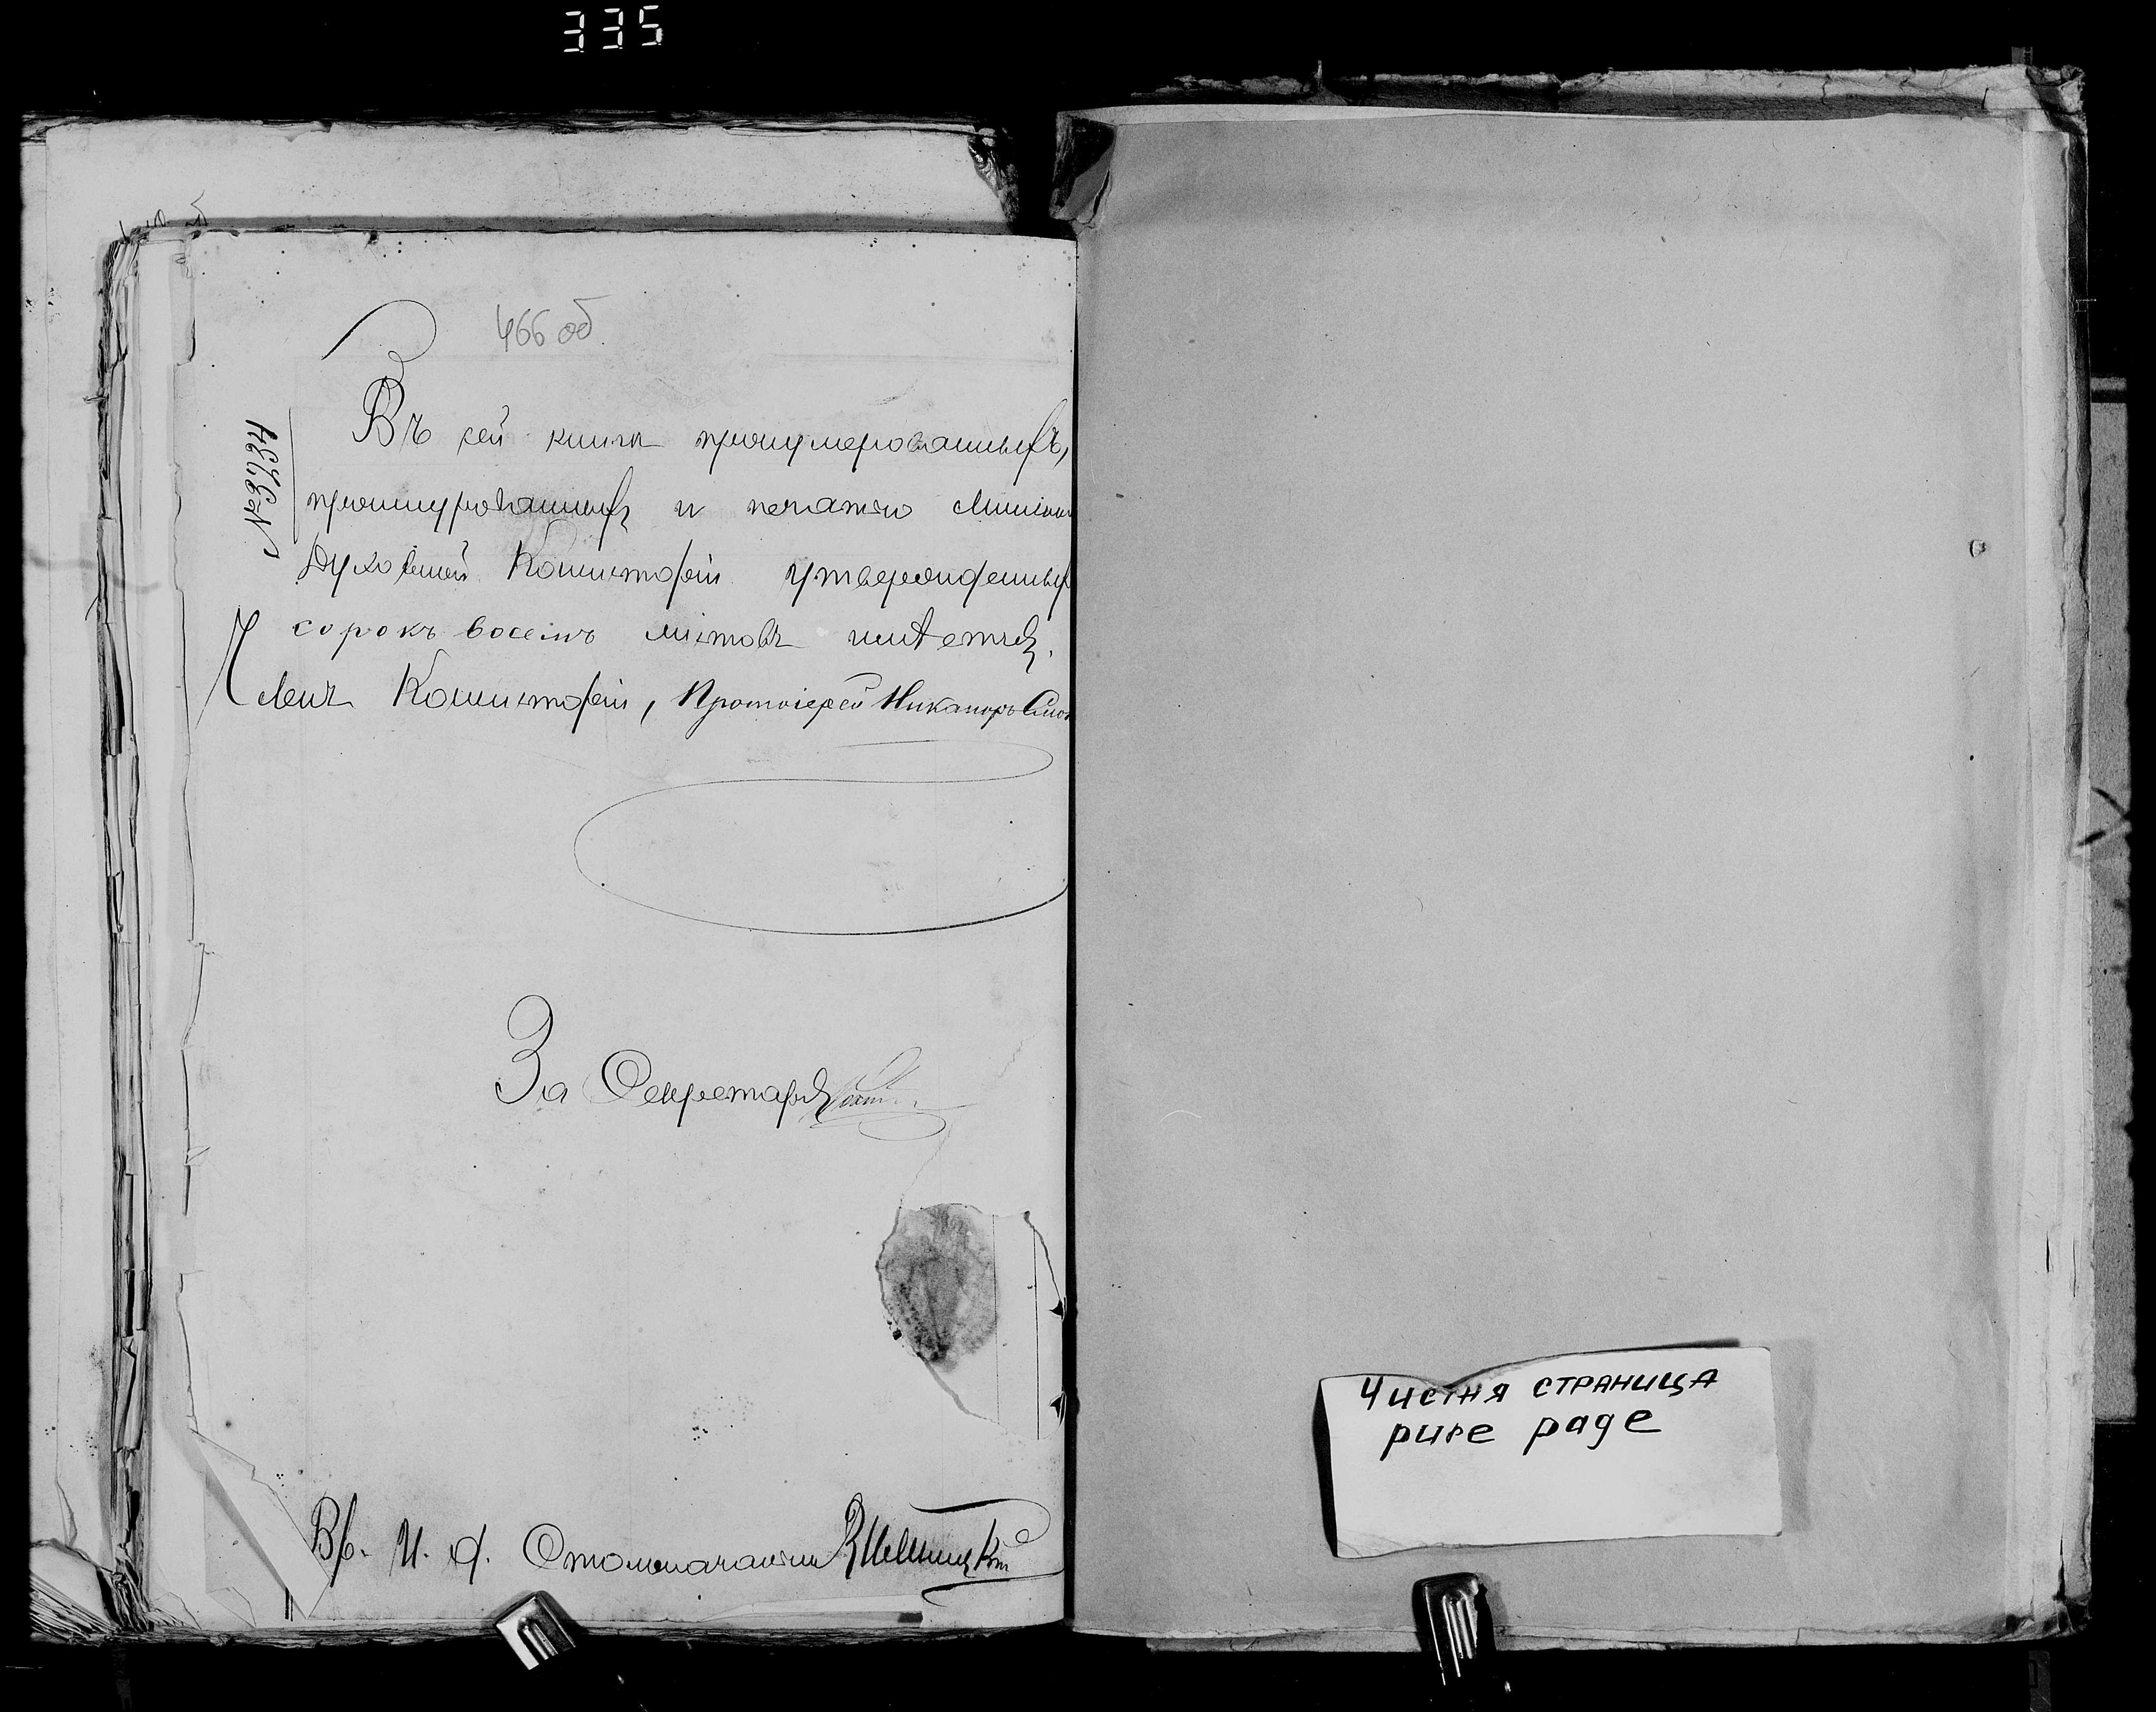 335
466 об.
№ 63234
Въ сей книгѣ пронумерованныхъ,
прошнурованныхъ и печатью Минской
Духовной Консисторіи утвержденныхъ
сорокъ восемь листовъ имѣется.
Членъ Консисторіи, Протоіерей Никаноръ Смо
За Секретаря
Вр. И. д. Столоначальника
Чистня страница
pure page